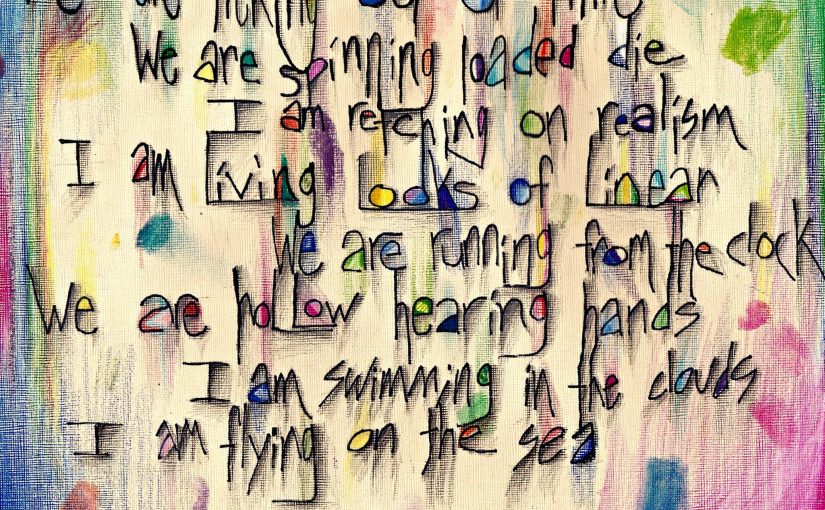 We are spinning loaded die
I am retching on realism
I am Living Looks of Linear
We are running from the clock
We are hollow hearing hands
I am swimming in the clouds
I am flying on the sea